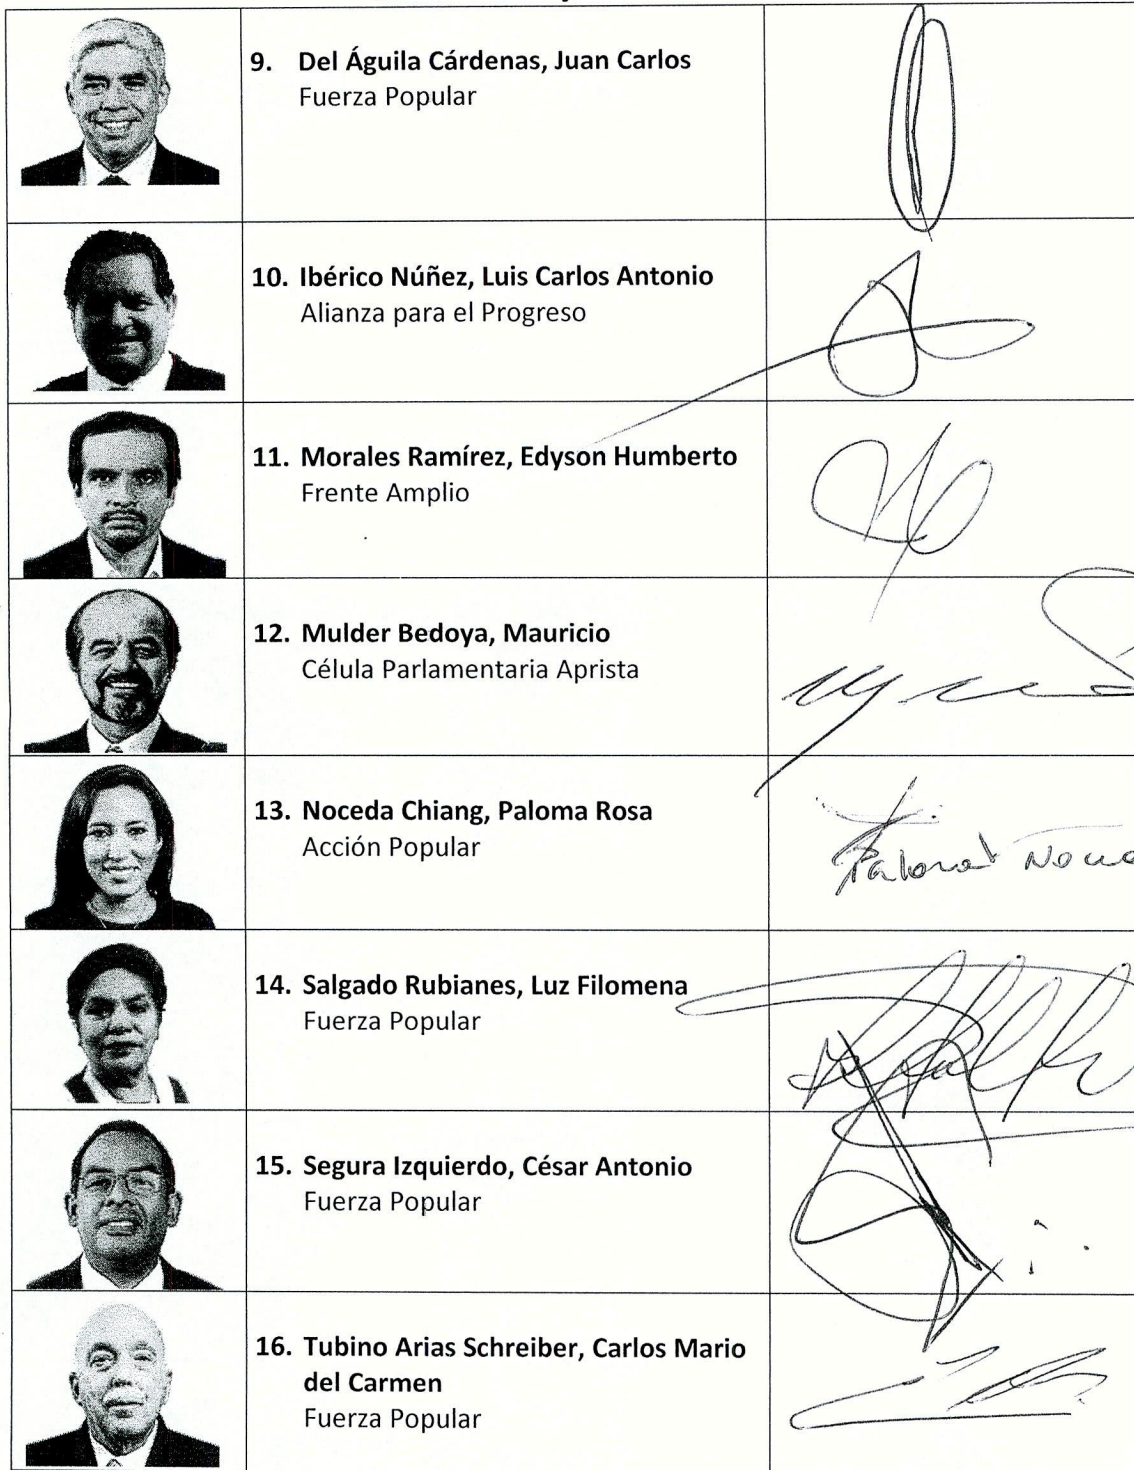 9. Del Águila Cárdenas, Juan Carlos
Fuerza Popular
10. Ibérico Núñez, Luis Carlos Antonio
Alianza para el Progreso
11. Morales Ramírez, Edyson Humberto
Frente Amplio
12. Mulder Bedoya, Mauricio
Célula Parlamentaria Aprista
13. Noceda Chiang, Paloma Rosa
Acción Popular
14. Salgado Rubianes, Luz Filomena
Fuerza Popular
15. Segura Izquierdo, César Antonio
Fuerza Popular
16. Tubino Arias Schreiber, Carlos Mario
del Carmen
Fuerza Popular